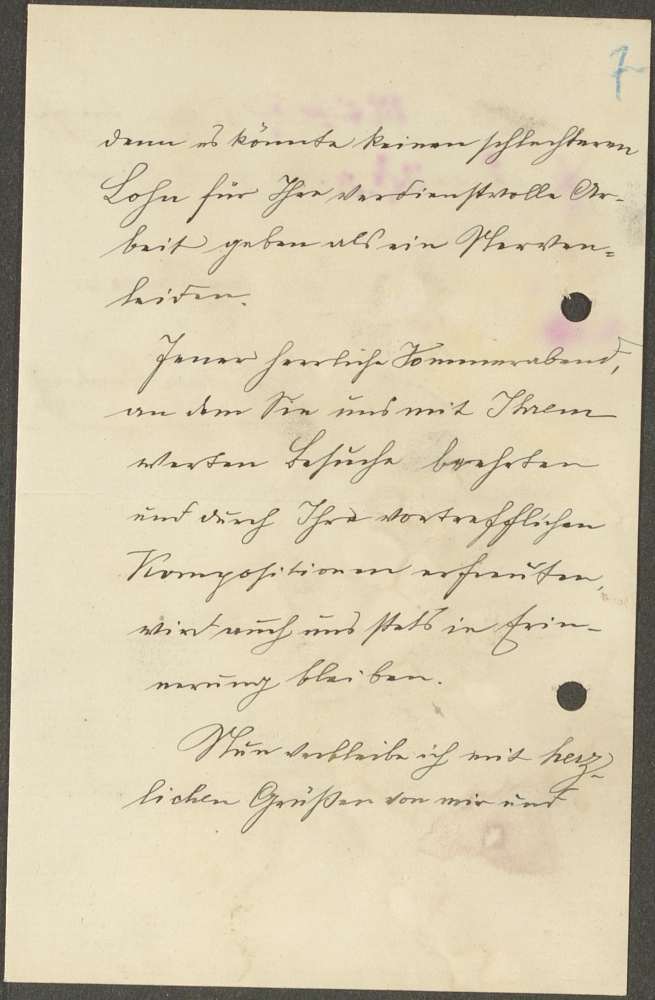 7
denn es könnte keinen schlechteren
Lohn für Ihre verdienstvolle Ar-
beit geben als ein Nerven-
leiden.
Jener herrliche Sommerabend,
an dem Sie uns mit Ihrem
werten Besuche beehrten
und durch Ihre vortrefflichen
Kompositionen erfreuten,
wird auch uns stets in Erin-
nerung bleiben.
Nun verbleibe ich mit herz-
lichen Grüßen von mir und